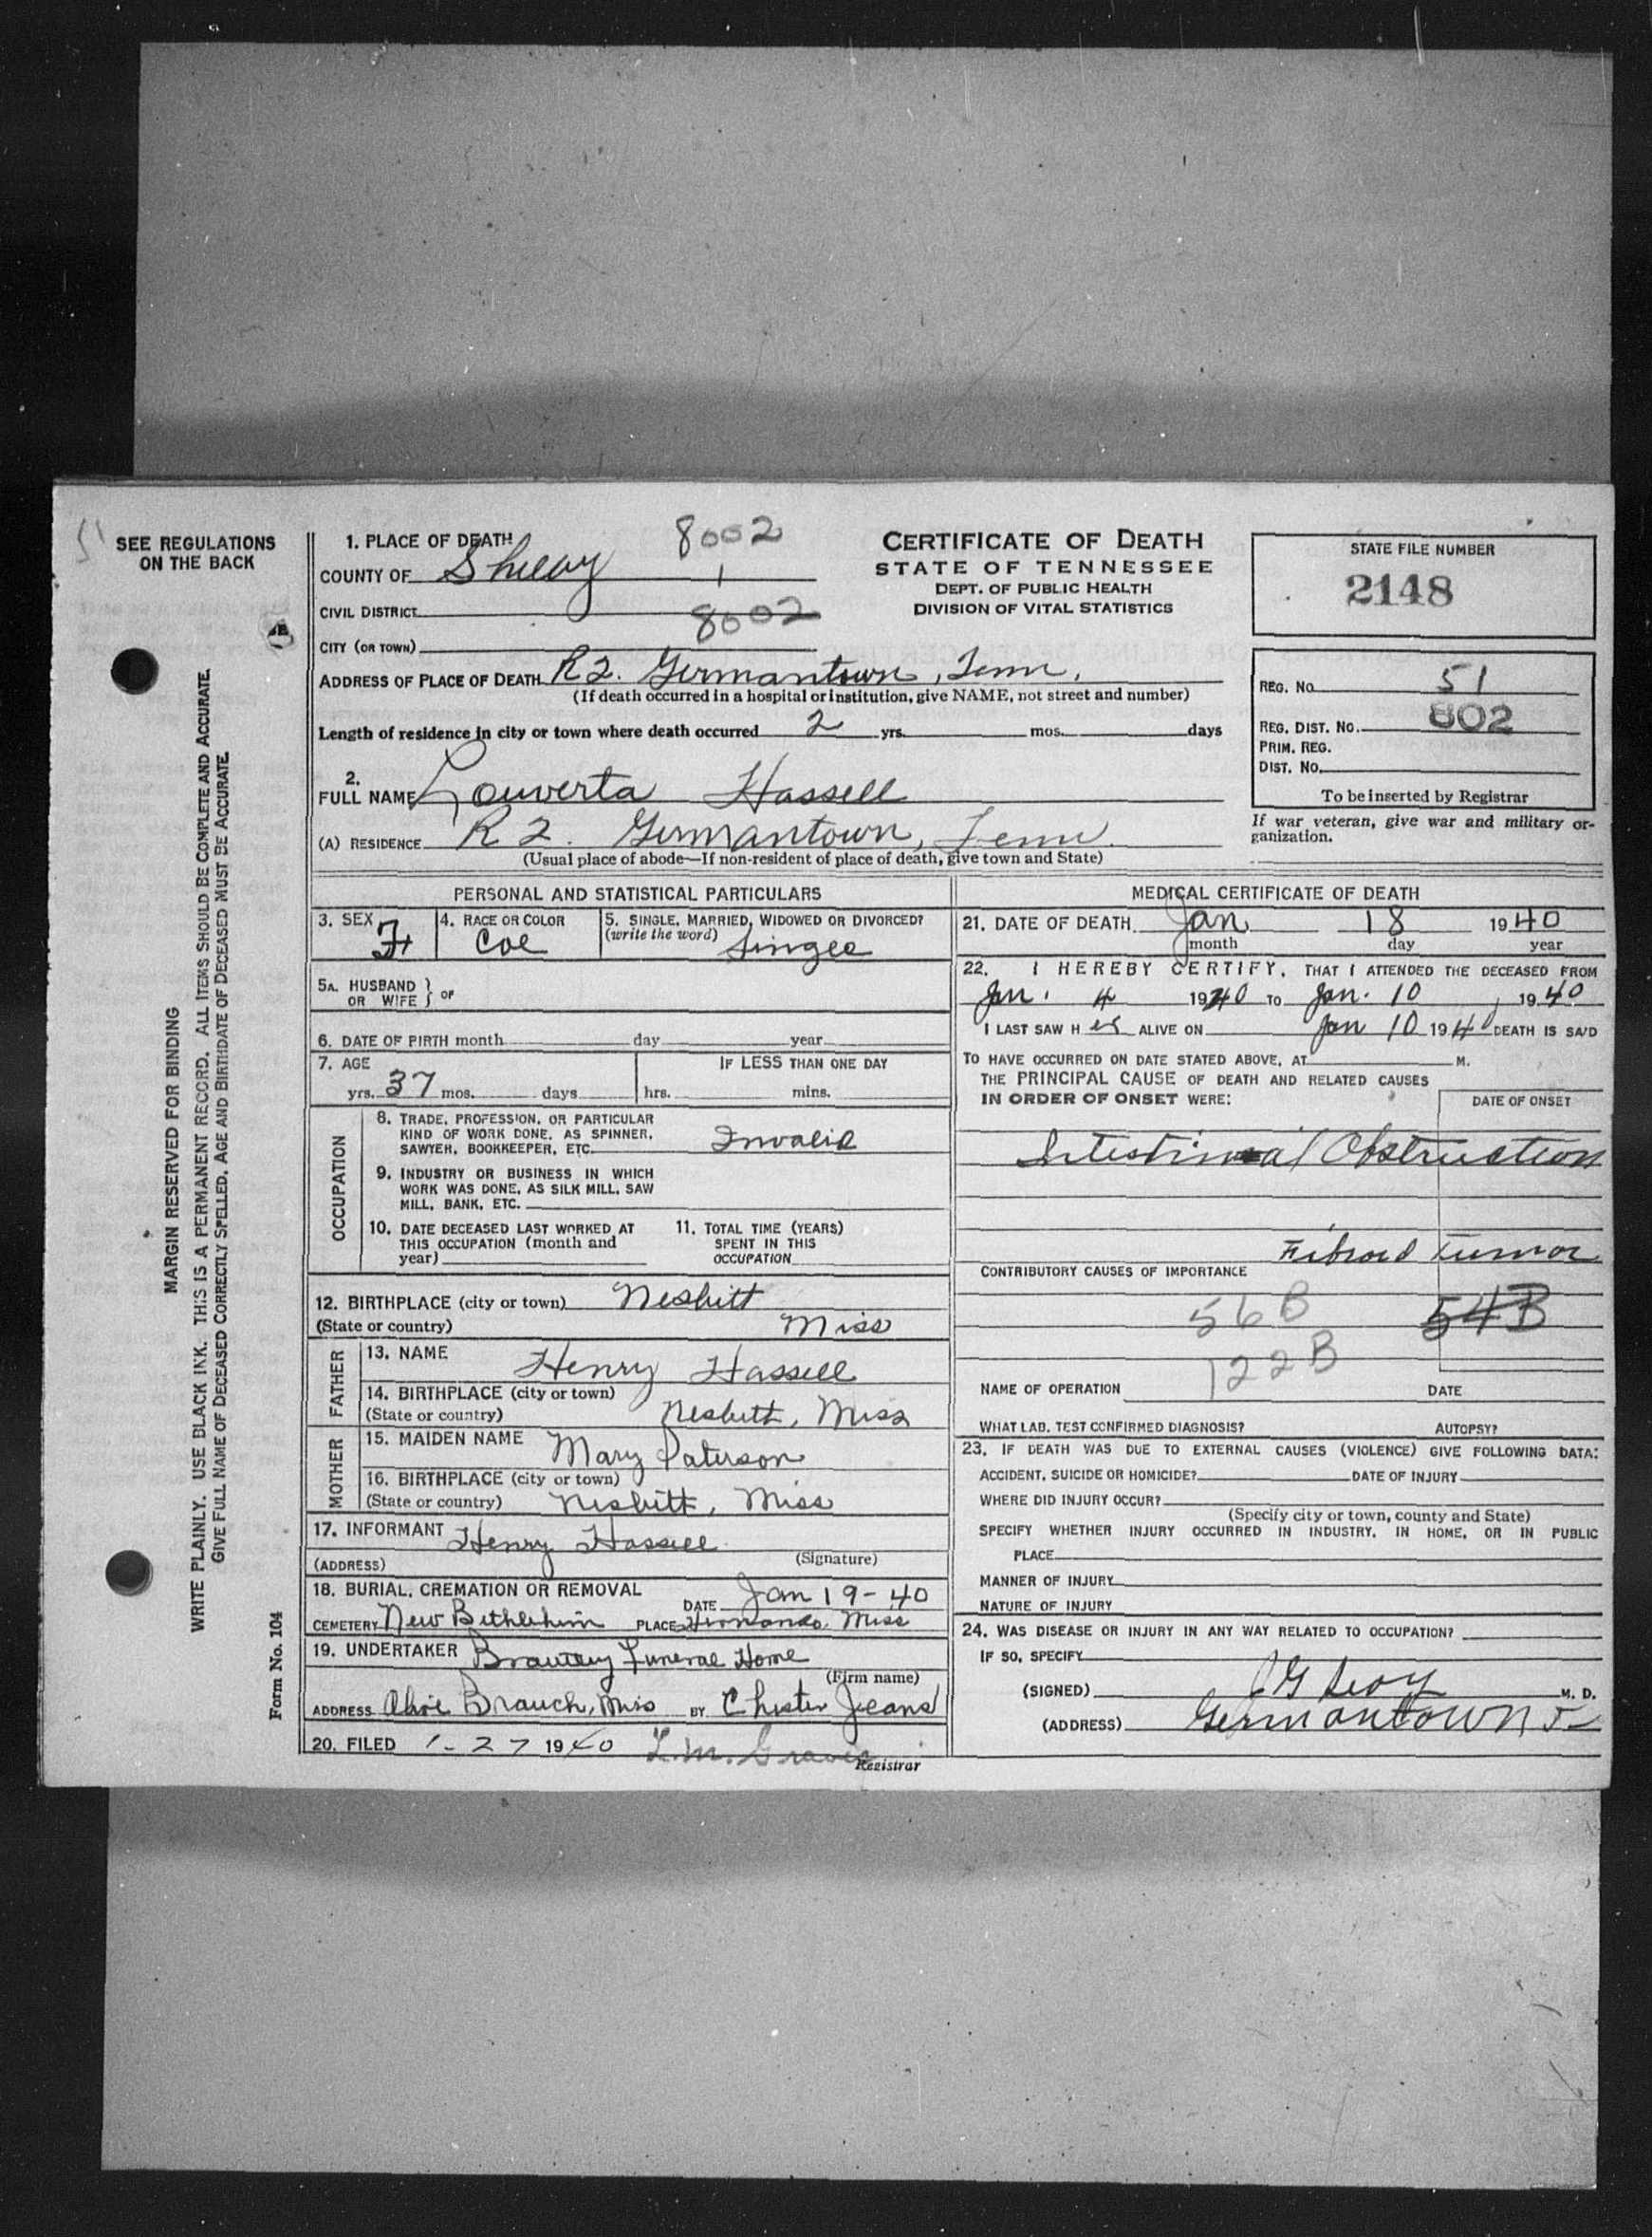 SEE REGULATIONS
ON THE BACK
MARGIN RESERVED FOR BINDING
WRITE PLAINLY. USE BLACK INK. THIS IS A PERMANENT RECORD. ALL ITEMS SHOULD BE COMPLETE AND ACCURATE.
GIVE FULL NAME OF DECEASED CORRECTLY SPELLED. AGE AND BIRTHDATE OF DECEASED MUST BE ACCURATE.
Form No. 104
CERTIFICATE OF DEATH
STATE OF TENNESSEE
DEPT. OF PUBLIC HEALTH
DIVISION OF VITAL STATISTICS
STATE FILE NUMBER
2148
REG. NO. 51
REG. DIST. NO. 802
PRIM. REG.
DIST. NO.
To be inserted by Registrar
If war veteran, give war and military or-
ganization.
1. PLACE OF DEATH 8002
COUNTY OF Shelby 1
CIVIL DISTRICT 8002
CITY (OR TOWN)
ADDRESS OF PLACE OF DEATH R2. Germantown, Tenn.
(If death occurred in a hospital or institution, give NAME, not street and number)
Length of residence in city or town where death occurred 2 yrs. mos. days
2.
FULL NAME Louverta Hassell
(A) RESIDENCE R 2. Germantown, Tenn.
(Usual place of abode—If non-resident of place of death, give town and State)
PERSONAL AND STATISTICAL PARTICULARS
3. SEX F
4. RACE OR COLOR Col
5. SINGLE, MARRIED, WIDOWED OR DIVORCED?
(write the word) Single
5A. HUSBAND } OF
OR WIFE
6. DATE OF BIRTH month day year
7. AGE IF LESS THAN ONE DAY
yrs. 37 mos. days hrs. mins.
OCCUPATION
8. TRADE, PROFESSION, OR PARTICULAR
KIND OF WORK DONE, AS SPINNER,
SAWYER, BOOKKEEPER, ETC. Invalid
9. INDUSTRY OR BUSINESS IN WHICH
WORK WAS DONE, AS SILK MILL, SAW
MILL, BANK, ETC.
10. DATE DECEASED LAST WORKED AT
THIS OCCUPATION (month and
year)
11. TOTAL TIME (YEARS)
SPENT IN THIS
OCCUPATION
12. BIRTHPLACE (city or town) Nesbitt
(State or country) Miss
FATHER
13. NAME Henry Hassell
14. BIRTHPLACE (city or town)
(State or country) Nesbitt, Miss
MOTHER
15. MAIDEN NAME Mary Paterson
16. BIRTHPLACE (city or town)
(State or country) Nesbitt, Miss
17. INFORMANT Henry Hassell
(ADDRESS) (Signature)
18. BURIAL, CREMATION OR REMOVAL DATE Jan 19-40
CEMETERY New Bethlehim PLACE Hernando, Miss
19. UNDERTAKER Brantley Funeral Home
(Firm name)
ADDRESS Olive Branch, Miss BY Chester Jeans
20. FILED 1-27 1940 L.M. Graves
Registrar
MEDICAL CERTIFICATE OF DEATH
21. DATE OF DEATH Jan 18 1940
month day year
22. I HEREBY CERTIFY, THAT I ATTENDED THE DECEASED FROM
Jan. 4 1940 TO Jan. 10, 1940
I LAST SAW H er ALIVE ON Jan 10 1940 DEATH IS SAID
TO HAVE OCCURRED ON DATE STATED ABOVE, AT M.
THE PRINCIPAL CAUSE OF DEATH AND RELATED CAUSES
IN ORDER OF ONSET WERE: DATE OF ONSET
Intestinal Obstruction
Fibroid Tumor
CONTRIBUTORY CAUSES OF IMPORTANCE
56B 54B
122B
NAME OF OPERATION DATE
WHAT LAB. TEST CONFIRMED DIAGNOSIS? AUTOPSY?
23. IF DEATH WAS DUE TO EXTERNAL CAUSES (VIOLENCE) GIVE FOLLOWING DATA:
ACCIDENT, SUICIDE OR HOMICIDE? DATE OF INJURY
WHERE DID INJURY OCCUR?
(Specify city or town, county and State)
SPECIFY WHETHER INJURY OCCURRED IN INDUSTRY, IN HOME, OR IN PUBLIC
PLACE
MANNER OF INJURY
NATURE OF INJURY
24. WAS DISEASE OR INJURY IN ANY WAY RELATED TO OCCUPATION?
IF SO, SPECIFY
(SIGNED) M. D.
(ADDRESS) Germantown